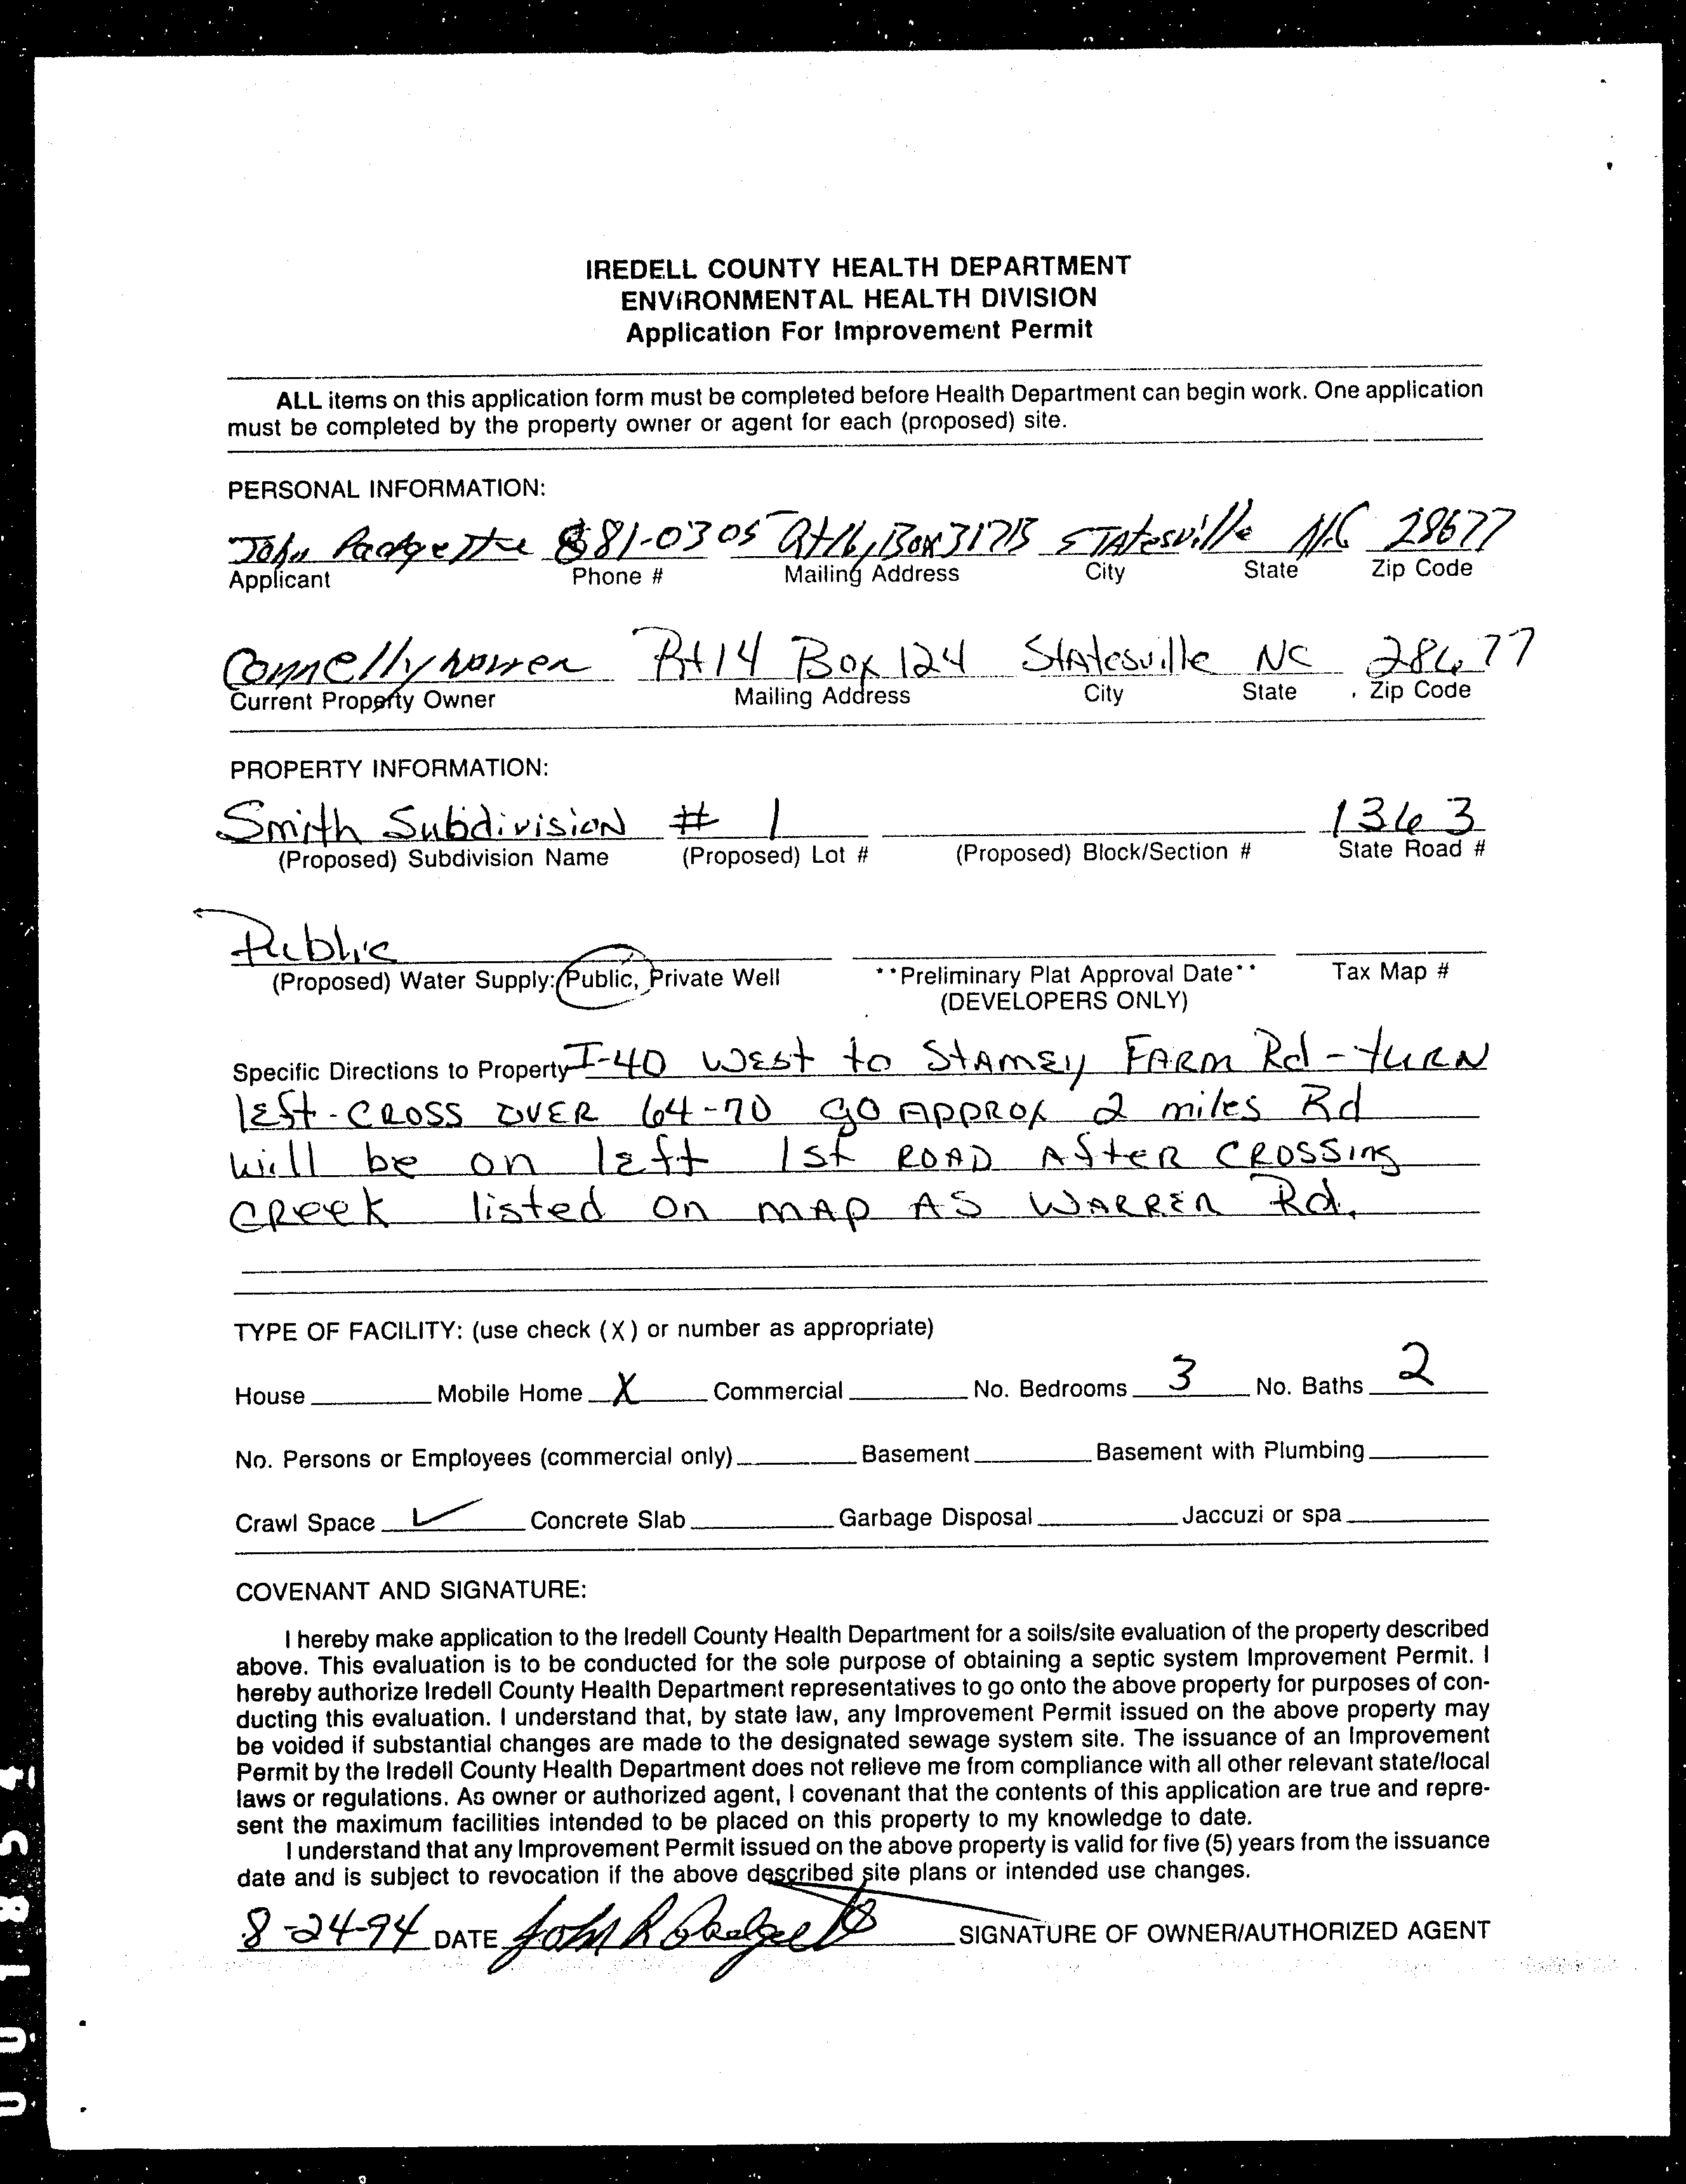 IREDELL COUNTY HEALTH DEPARTMENT
ENVIRONMENTAL HEALTH DIVISION
Application For Improvement Permit
ALL items on this application form must be completed before Health Department can begin work. One application
must be completed by the property owner or agent for each (proposed) site.
PERSONAL INFORMATION:
John Padgette 881-0305 Rt16, Box 317B STATesville N.C 28677
Applicant Phone # Mailing Address City State Zip Code
Connelly Rt 14 Box 124 Statesville NC 28677
Current Property Owner Mailing Address City State Zip Code
PROPERTY INFORMATION:
Smith Subdivision # 1 1363
(Proposed) Subdivision Name (Proposed) Lot # (Proposed) Block/Section # State Road #
Public
(Proposed) Water Supply: Public, Private Well **Preliminary Plat Approval Date** Tax Map #
(DEVELOPERS ONLY)
Specific Directions to Property I-40 WEst to StAMEy FARM Rd - tuRN
lEft - CROSS OVER 64-70 go APPROX 2 miles Rd
will be on lEft 1st ROAD AftER CROSSING
CREEK listed on MAP AS WARREN Rd.
TYPE OF FACILITY: (use check (X) or number as appropriate)
House Mobile Home X Commercial No. Bedrooms 3 No. Baths 2
No. Persons or Employees (commercial only) Basement Basement with Plumbing
Crawl Space ✓ Concrete Slab Garbage Disposal Jaccuzi or spa
COVENANT AND SIGNATURE:
I hereby make application to the Iredell County Health Department for a soils/site evaluation of the property described
above. This evaluation is to be conducted for the sole purpose of obtaining a septic system Improvement Permit. I
hereby authorize Iredell County Health Department representatives to go onto the above property for purposes of con-
ducting this evaluation. I understand that, by state law, any Improvement Permit issued on the above property may
be voided if substantial changes are made to the designated sewage system site. The issuance of an Improvement
Permit by the Iredell County Health Department does not relieve me from compliance with all other relevant state/local
laws or regulations. As owner or authorized agent, I covenant that the contents of this application are true and repre-
sent the maximum facilities intended to be placed on this property to my knowledge to date.
I understand that any Improvement Permit issued on the above property is valid for five (5) years from the issuance
date and is subject to revocation if the above described site plans or intended use changes.
8-24-94 DATE John R Padgett SIGNATURE OF OWNER/AUTHORIZED AGENT